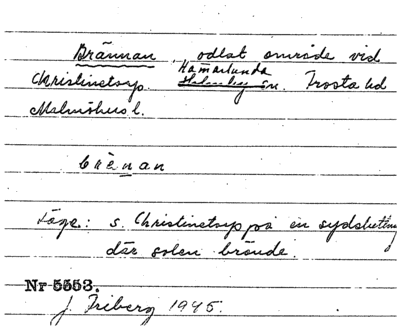 Brännan, odlat område vid
Christinetorp. Hammarlunda sn. Frosta hd
Malmöhus l.
brènan
Läge: S. Christinetorp på en sydsluttning
där solen brände.
Nr 5553.
J. Friberg 1945.